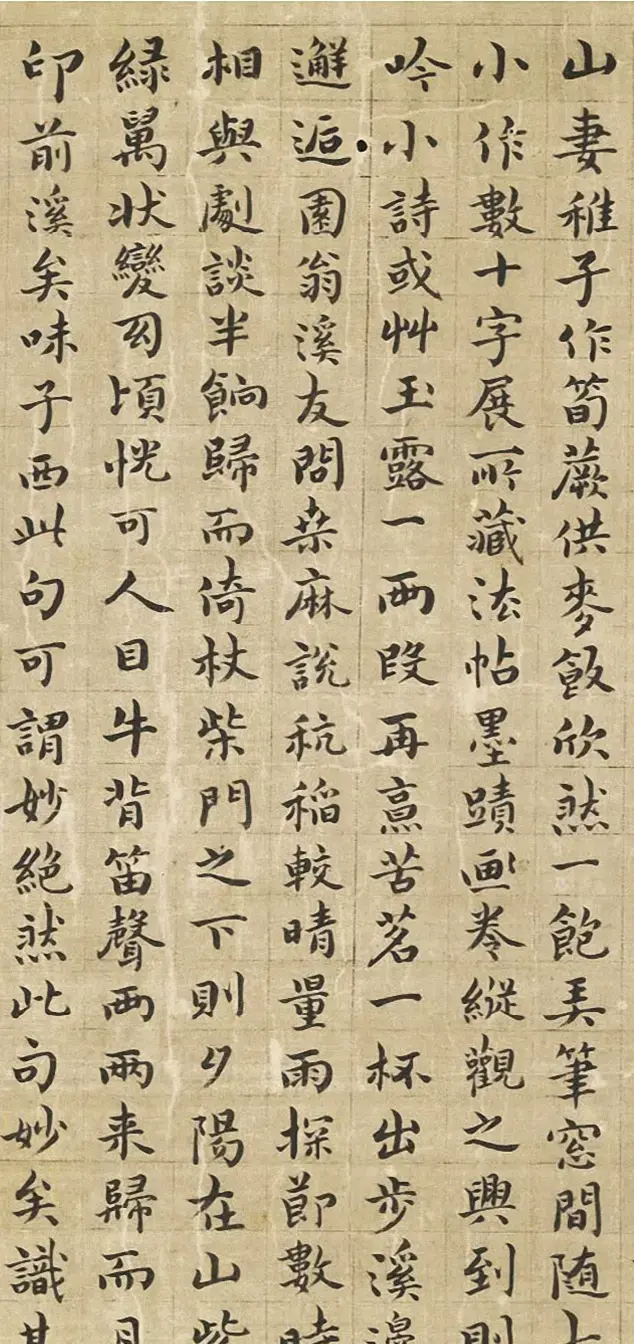 山妻稚子作筍蕨供麥飯欣然一飽弄筆窓間随大
小作數十字展所藏法帖墨蹟画卷縱觀之興到則
吟小詩或艸玉露一兩段再烹苦茗一杯出步溪邊
邂逅園翁溪友問桒麻說秔稻較晴量雨探節數時
相與劇談半餉歸而倚杖柴門之下則夕陽在山紫
緑萬状變幻頃恍可人目牛背笛聲兩兩来歸而月
印前溪矣味子西此句可謂妙絶然此句妙矣識其